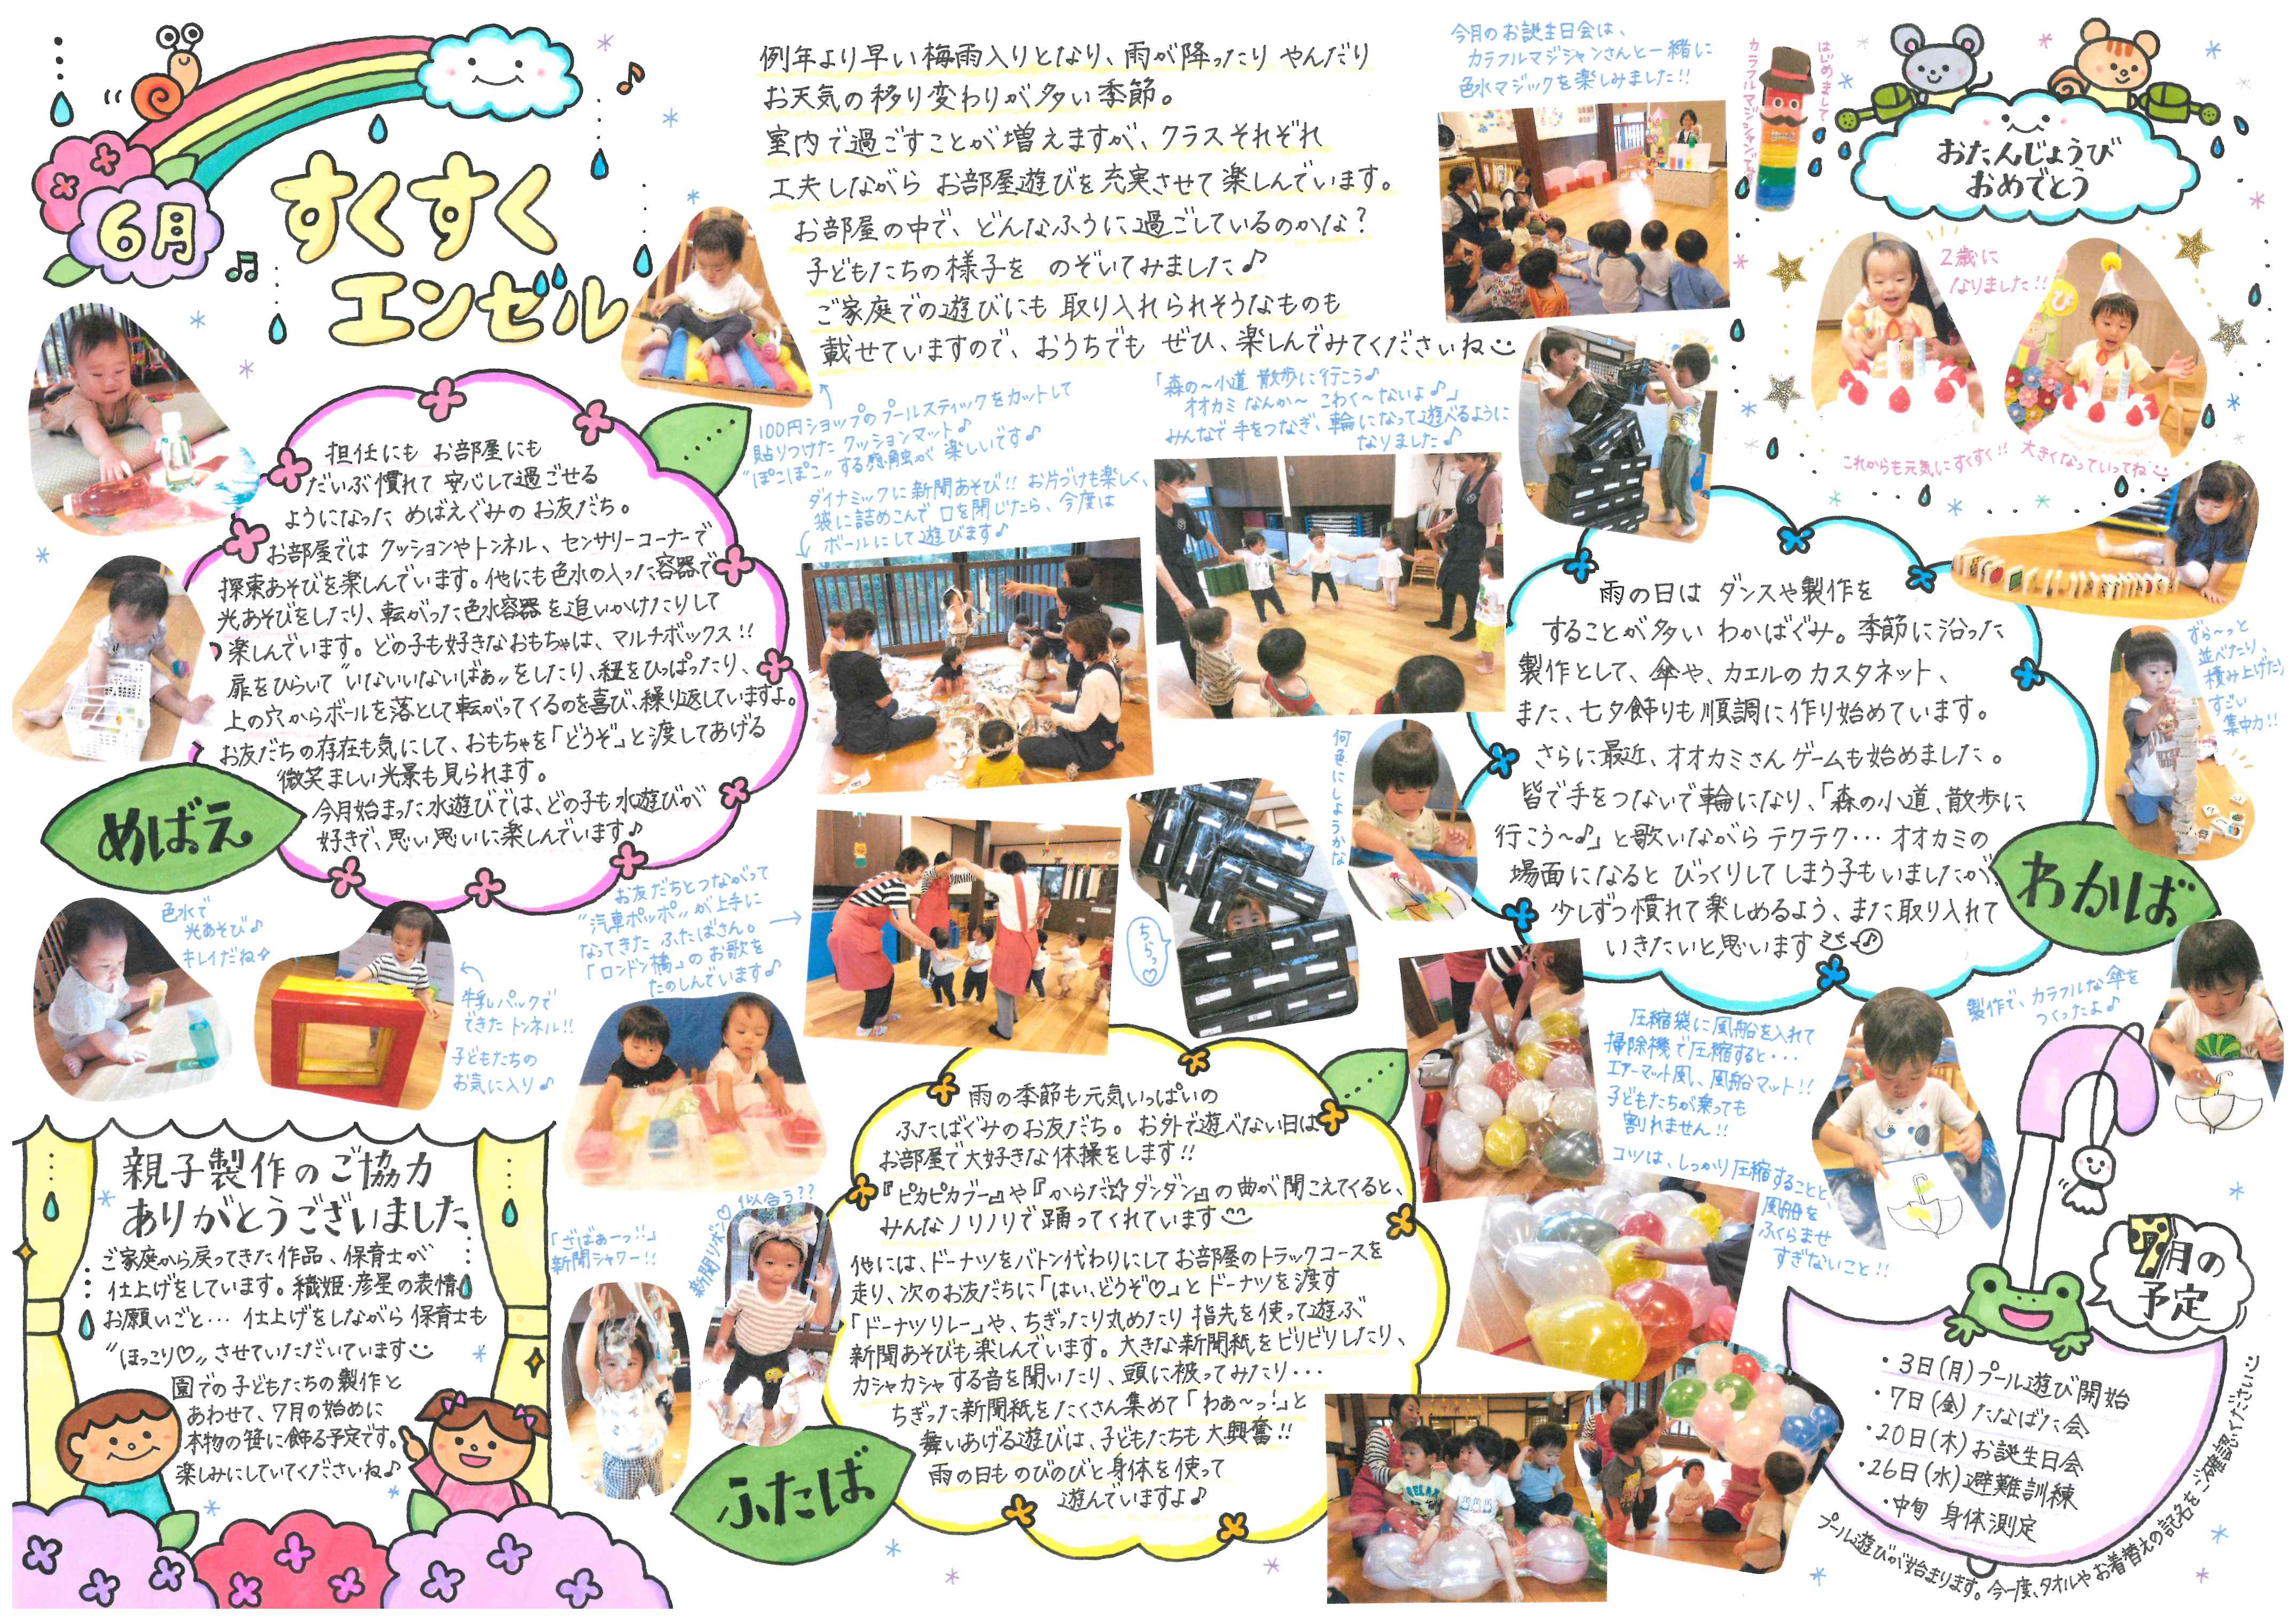 6月
すくすく
エンゼル
例年より早い梅雨入りとなり、雨が降ったり やんだり
お天気の移り変わりが多い季節。
室内で過ごすことが増えますが、クラスそれぞれ
工夫しながら お部屋遊びを充実させて楽しんでいます。
お部屋の中で、どんなふうに過ごしているのかな?
子どもたちの様子を のぞいてみました♪
ご家庭での遊びにも 取り入れられそうなものも
載せていますので、おうちでも ぜひ、楽しんでみてくださいね
今月のお誕生日会は、
カラフルマジシャンさんと一緒に
色水マジックを楽しみました!!
はじめまして
カラフルマジシャンです
おたんじょうび
おめでとう
2歳に
なりました!!
これからも元気にすくすく!! 大きくなっていってね
100円ショップのプールスティックをカットして
貼りつけた クッションマット♪
"ぽこぽこ"する感触が 楽しいです♪
ダイナミックに新聞あそび!! お片づけも楽しく、
袋に詰めこんで 口を閉じたら、今度は
ボールにして遊びます♪
「森の〜小道 散歩に行こう♪
オオカミなんか〜 こわく〜ないよ♪」
みんなで手をつなぎ、輪になって遊べるように
なりました♪
担任にも お部屋にも
だいぶ慣れて 安心して過ごせる
ようになった めばえぐみのお友だち。
お部屋では クッションやトンネル、センサリーコーナーで
探索あそびを楽しんでいます。他にも色水の入った容器で
光あそびをしたり、転がった色水容器を追いかけたりして
楽しんでいます。どの子も好きなおもちゃは、マルチボックス!!
扉をひらいて"いないいないばぁ"をしたり、紐をひっぱったり、
上の穴からボールを落として転がってくるのを喜び、繰り返していますよ。
お友だちの存在も気にして、おもちゃを「どうぞ」と渡してあげる
微笑ましい光景も見られます。
今月始まった水遊びでは、どの子も水遊びが
好きで、思い思いに楽しんでいます♪
めばえ
雨の日は ダンスや製作を
することが多い わかばぐみ。季節に沿った
製作として、傘や、カエルのカスタネット、
また、七夕飾りも順調に作り始めています。
さらに最近、オオカミさんゲームも始めました。
皆で手をつないで輪になり、「森の小道、散歩に
行こう〜♪」と歌いながら テクテク… オオカミの
場面になると びっくりしてしまう子もいましたが、
少しずつ慣れて楽しめるよう、また取り入れて
いきたいと思います
わかば
ずら〜っと
並べたり、
積み上げたり
すごい
集中力!!
何色にしようかな
ちらっ♡
色水で
光あそび♪
キレイだね☆
牛乳パックで
できた トンネル!!
子どもたちの
お気に入り♪
お友だちとつながって
"汽車ポッポ"が上手に
なってきた ふたばさん。
「ロンドン橋」のお歌を
たのしんでいます♪
圧縮袋に風船を入れて
掃除機で圧縮すると・・・
エアーマット風、風船マット!!
子どもたちが乗っても
割れません!!
コツは、しっかり圧縮することと、
風船を
ふくらませ
すぎないこと!!
製作で、カラフルな傘を
つくったよ♪
親子製作のご協力
ありがとうございました
ご家庭から戻ってきた作品、保育士が
仕上げをしています。織姫・彦星の表情
お願いごと… 仕上げをしながら 保育士も
"ほっこり♡"させていただいています
園での子どもたちの製作と
あわせて、7月の始めに
本物の笹に飾る予定です。
楽しみにしていてくださいね♪
「ざばぁーっ!」
新聞シャワー!!
新聞リボン♡似合う??
雨の季節も元気いっぱいの
ふたばぐみのお友だち。お外で遊べない日は
お部屋で大好きな体操をします!!
『ピカピカブー』や『からだ☆ダンダン』の曲が聞こえてくると、
みんなノリノリで踊ってくれています
他には、ドーナツをバトン代わりにしてお部屋のトラックコースを
走り、次のお友だちに「はい、どうぞ♡」とドーナツを渡す
「ドーナツリレー」や、ちぎったり丸めたり指先を使って遊ぶ
新聞あそびも楽しんでいます。大きな新聞紙をビリビリしたり、
カシャカシャする音を聞いたり、頭に被ってみたり・・・
ちぎった新聞紙をたくさん集めて「わぁ〜っ!」と
舞いあげる遊びは、子どもたちも大興奮!!
雨の日ものびのびと身体を使って
遊んでいますよ♪
ふたば
7月の
予定
・3日(月)プール遊び開始
・7日(金)たなばた会
・20日(木)お誕生日会
・26日(水)避難訓練
・中旬 身体測定
プール遊びが始まります。今一度、タオルやお着替えの記名をご確認ください